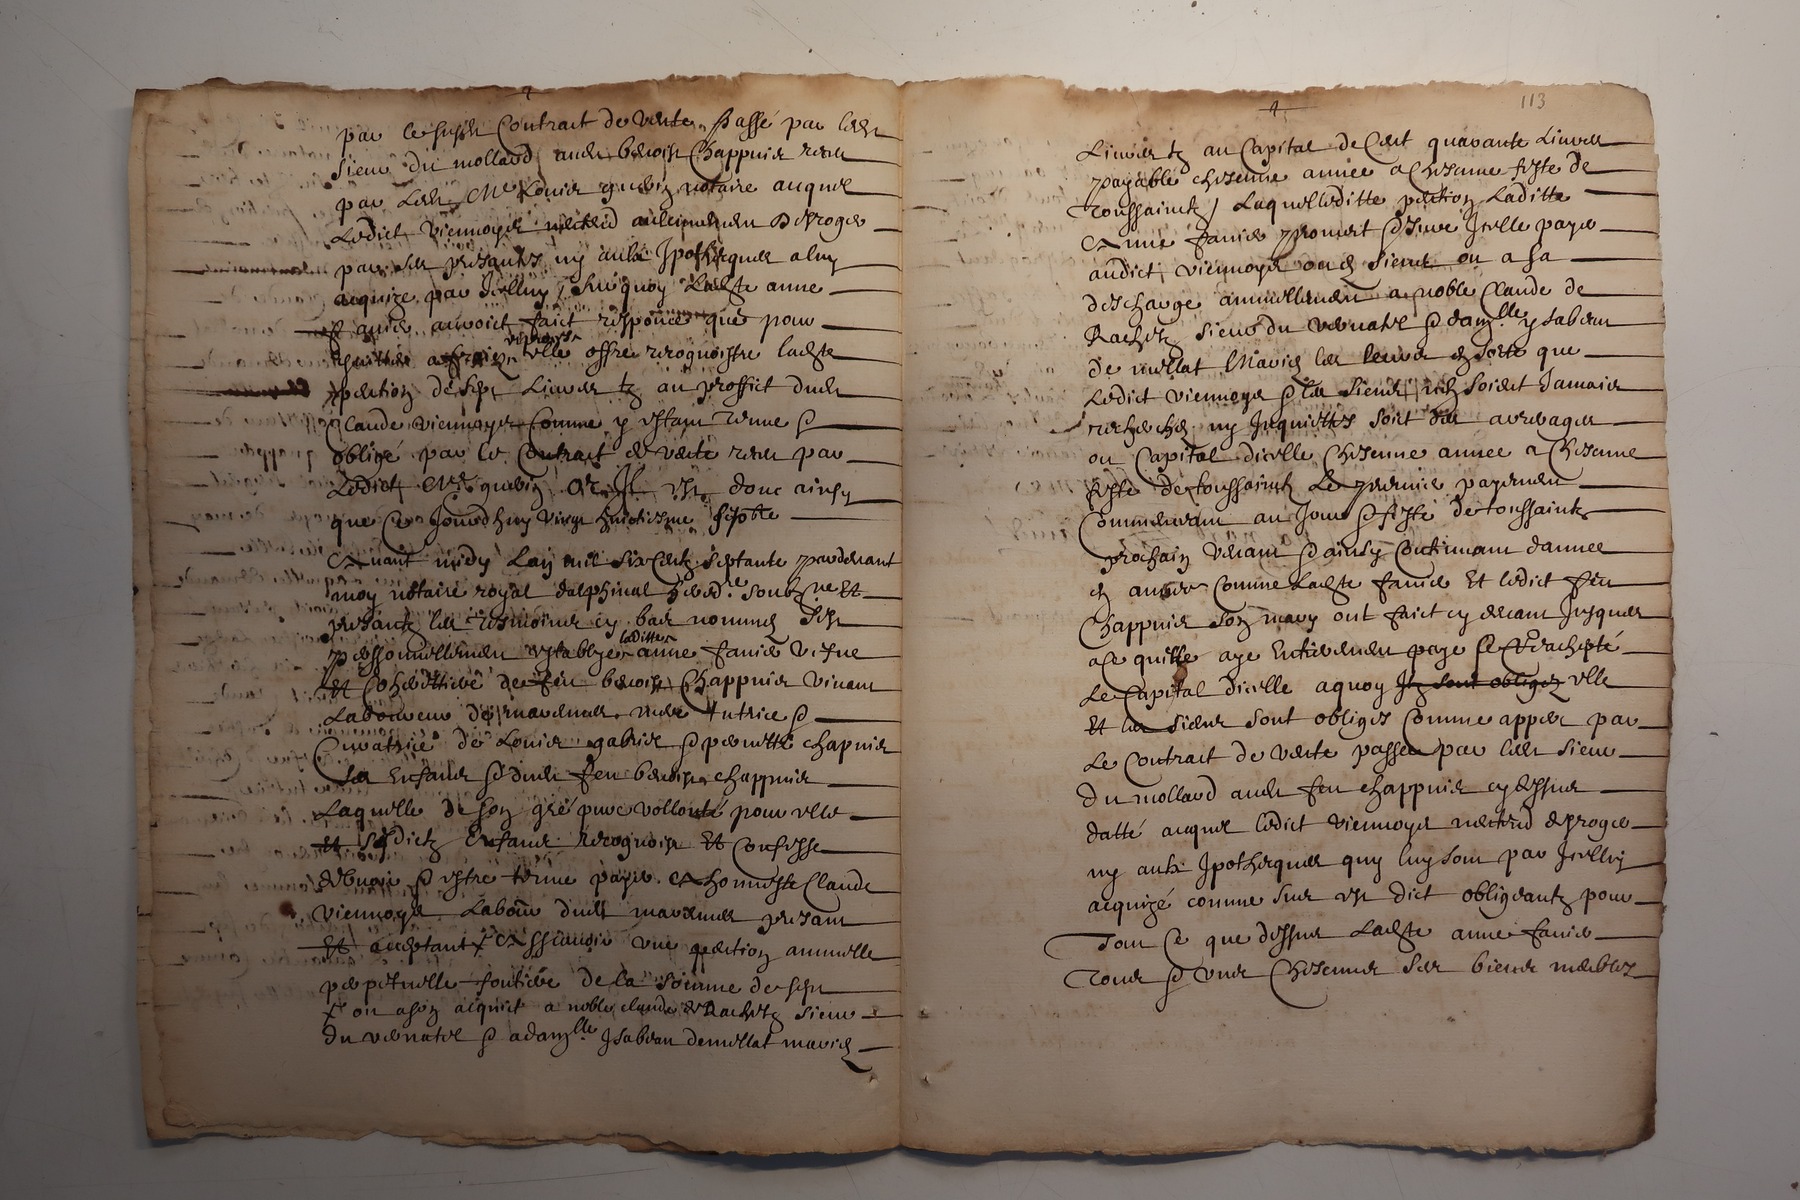 par le susdit Contract de vente passé par ledit
Sieur du mollard audit benoist Chappuis receu
par ledit Me Louis notaire auquel
Ledict viennoys desroger
par ses presantes ny aulx Ipothecques a luy
acquize par Icelluy, Sur quoy Ladite anne
favier auroict faict responce que pour
elle offre recognoistre ladite
pention de sept Livres tz au proffict dudit
Claude viennoys Comme y estant tenue et
obligé par le Contract de vente receu par
Ledict Me est donc ainsy
que Ce Jourdhuy vingt huictiesme
Avant midy Lan mil six Centz septante pardevant
moy notaire royal dalphinal hered.re soubzne Et
presantz les tesmoins cy bas nommez Sest
personnellement establye laditte anne favier vefve
Et de feu benoist Chappuis vivant
Laboureur de mere tutrice et
Curatrice de Louis gabriel et pernette chapuis
ses Enfans et dudit feu benoist chappuis
Laquelle de son gré pure vollonté pour elle
et sesdictz Enfans Recognoist Et Confesse
debvoir et estre tenue payer A honneste Claude
viennoys Labour dudit presant
Et acceptant A Sçavoir une pention annuelle
perpetuelle fontiere de la somme de sept
ou a son acquict a noble claude de Rachetz sieur
du vernatel et a damlle Isabeau demellat mariez
113
Livres tz au Capital de Cent quarante Livres
payable chascune année a chascune feste de
Toussainctz / Laquelleditte pention Laditte
Anne favier promet et Jure Icelle payer
audict viennoys ou es siens ou a sa
descharge annuellement a noble Claude de
Rachetz sieur du vernatel et damlle ysabeau
de mellat Mariez les leurs en sorte que
Ledict viennoys et les siens nen soient Jamais
recherchez ny Inquiettés soict des arreages
ou Capital dicelle Chascune annee a Chascune
feste de toussainctz Le premier payement
Commencant au Jour et feste de toussainctz
prochain venant et ainsy Continuant dannee
en annee Comme Ladite favier Et ledict feu
Chappuis son mary ont faict cy devant Jusques
a ce quille aye Entierement paye et rachepté
Le Capital dicelle aquoy Ilz sont obligez elle
Et les siens sont obliges Comme apper par
Le Contract de vente passé par ledit sieur
du mollard audit feu chappuis cy dessus
datté auquel ledict viennoys nentend desroger
ny aulx Ipothecques quy luy sont par Icelluy
acquizé comme sus est dict obligeantz pour
Tout Ce que dessus Ladite anne favier
Tous et uns Chascuns ses biens meubles